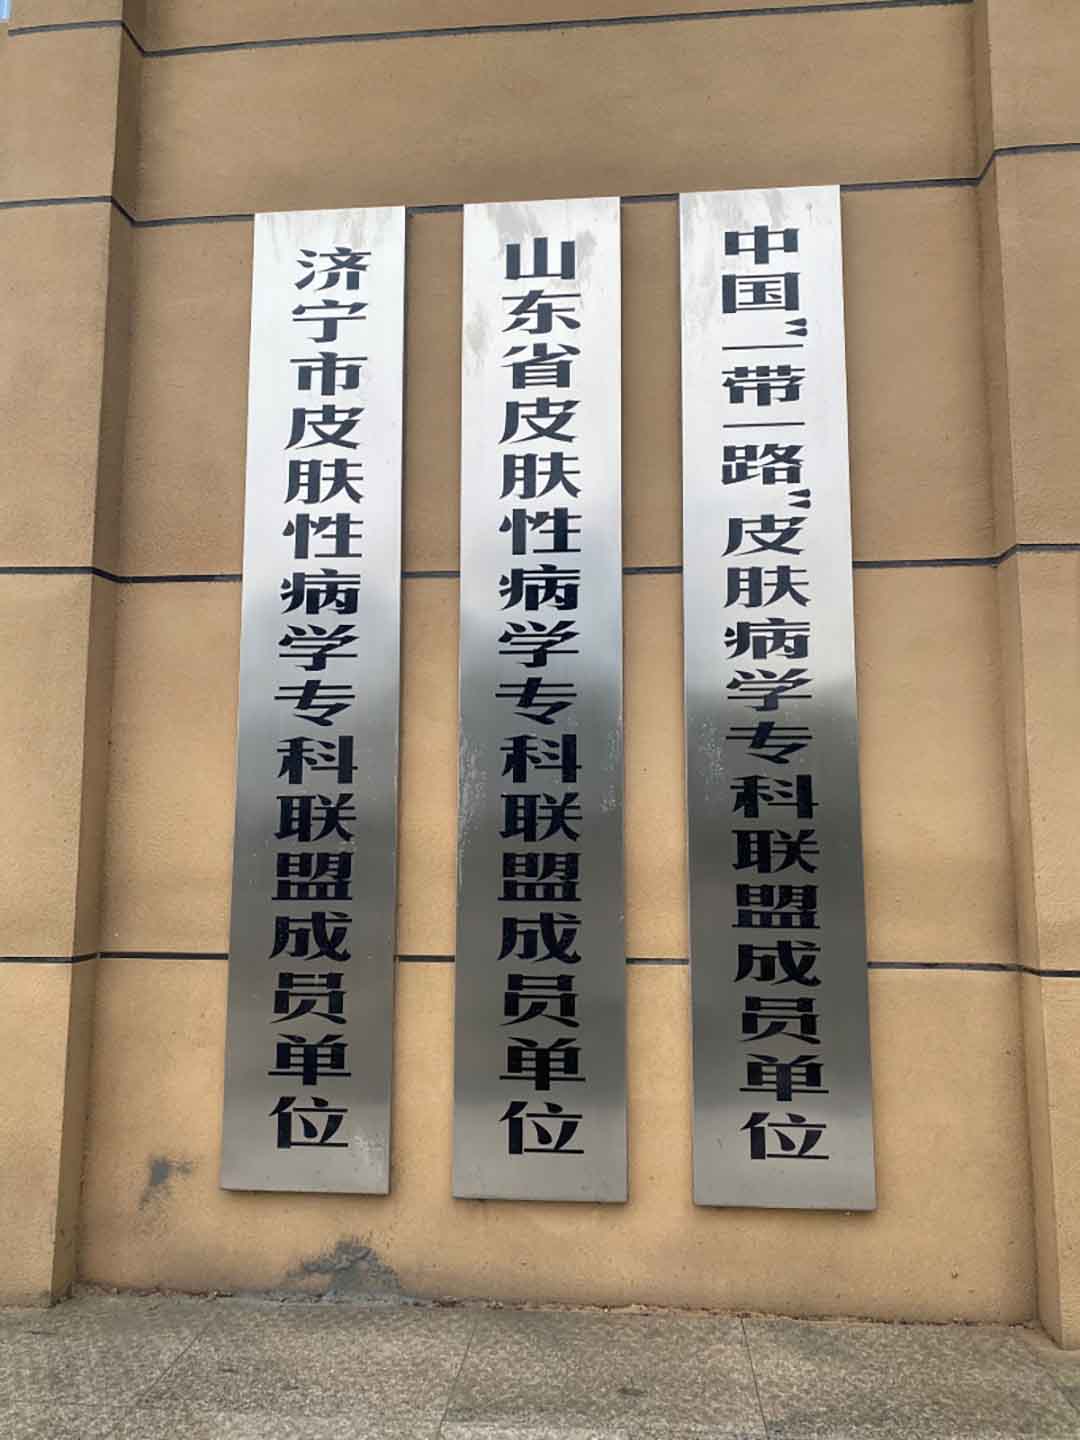 中国“一带一路”皮肤病学专科联盟成员单位
山东省皮肤性病学专科联盟成员单位
济宁市皮肤性病学专科联盟成员单位